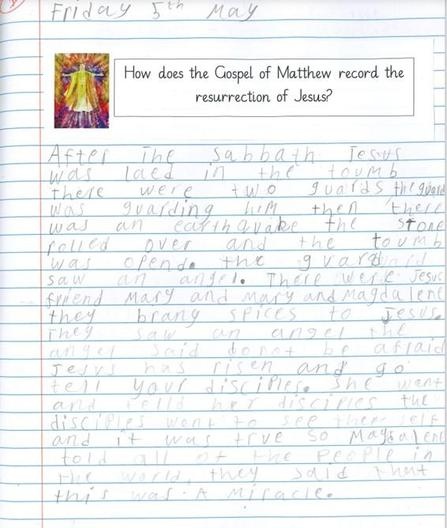 Friday 5th May
How does the Gospel of Matthew record the
resurrection of Jesus?
After The Sabbath Jesus
was laed in the toumb
There were two guards the guard
was guarding him then there
was an earthquake the stone
rolled over and the toumb
was opend. the guard
saw an angel. There were Jesus
friend Mary and Mary and Magdalene
they brang spices to Jesus.
They saw an angel the
angel said donot be afraid
Jesus has risen and go
tell your disciples. She want
and telld her disciples the
disciples went to see
and it was true so Magdalene
told all of the people in
the world, they said that
this was A miracle.